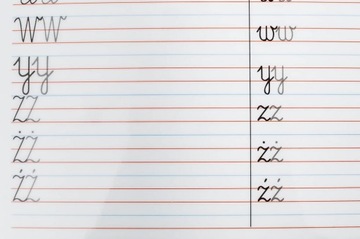 WW ww
Yy yy
ZZ zz
ŻŻ żż
ŹŹ źź